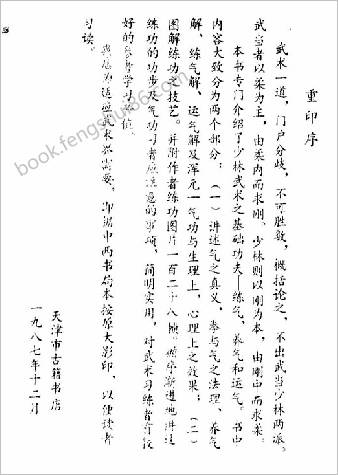 重印序
武术一道,门户分歧,不可胜数,概括论之,不出武当少林两派。
武当者以柔为主,由柔内而求刚。少林则以刚为本,由刚中而求柔。
本书专门介绍了少林武术之基础功夫—练气,养气和运气。书中
内容大致分为两个部分,(一)讲述气之真义,拳与气之法理,养气
解、练气解、运气解及浑元一气功与生理上,心理上之效果;(二)
图解练功之技艺。并附作者练功图片一百二十八帧。循序渐进地讲述
练功的功步及气功习者应注意的事项,简明实用,对武术习练者有较
好的参考学习价值。
我店为适应武术界需要,即据中西书局本按原大影印,以便读者
习读。
天津市古籍书店
一九八七年十二月
book.fengshui86.com